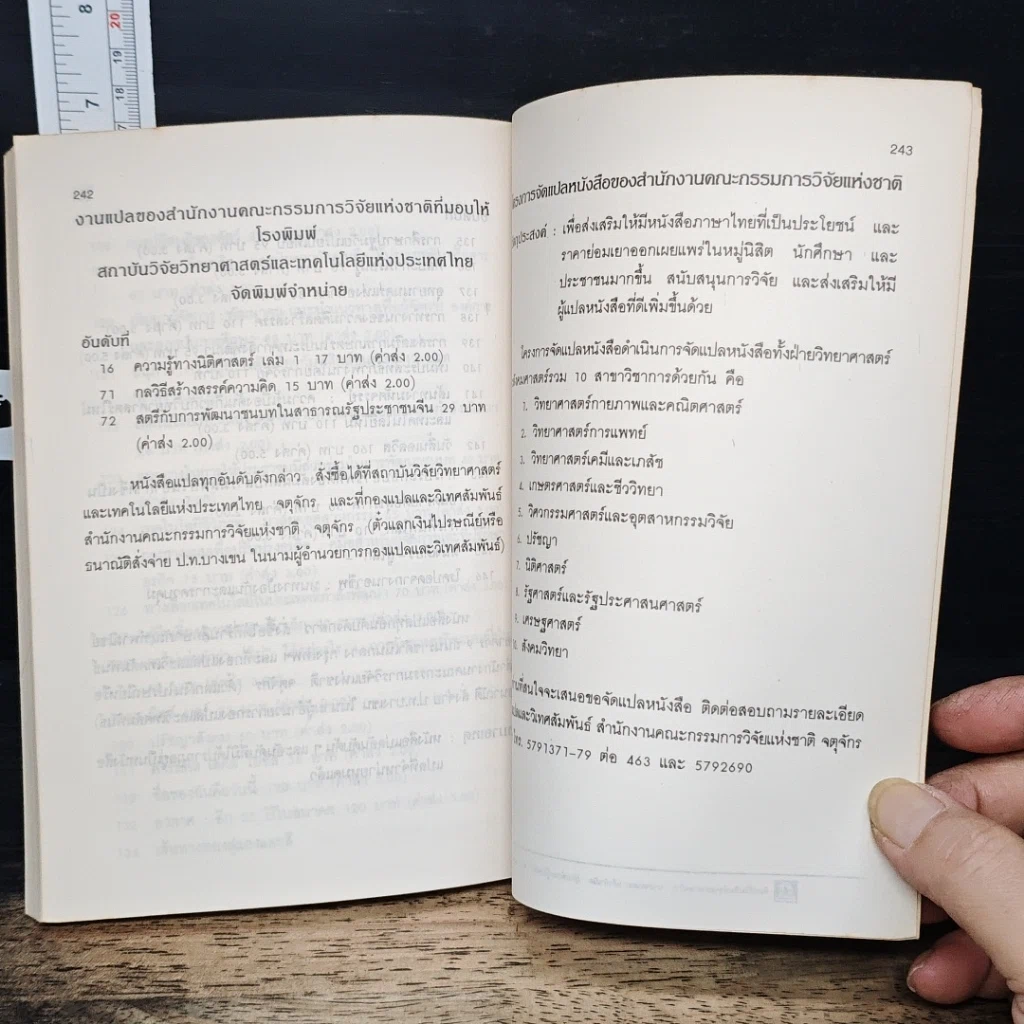 8
20
19
7
18
17
242
งานแปลของสำนักงานคณะกรรมการวิจัยแห่งชาติที่มอบให้
โรงพิมพ์
สถาบันวิจัยวิทยาศาสตร์และเทคโนโลยีแห่งประเทศไทย
จัดพิมพ์จำหน่าย
อันดับที่
16 ความรู้ทางนิติศาสตร์ เล่ม 1 17 บาท (ค่าส่ง 2.00)
71 กลวิธีสร้างสรรค์ความคิด 15 บาท (ค่าส่ง 2.00)
72 สตรีกับการพัฒนาชนบทในสาธารณรัฐประชาชนจีน 29 บาท
(ค่าส่ง 2.00)
หนังสือแปลทุกอันดับดังกล่าว สั่งซื้อได้ที่สถาบันวิจัยวิทยาศาสตร์
และเทคโนโลยีแห่งประเทศไทย จตุจักร และที่กองแปลและวิเทศสัมพันธ์
สำนักงานคณะกรรมการวิจัยแห่งชาติ จตุจักร (ตั๋วแลกเงินไปรษณีย์หรือ
ธนาณัติสั่งจ่าย ป.ท.บางเขน ในนามผู้อำนวยการกองแปลและวิเทศสัมพันธ์)
243
โครงการจัดแปลหนังสือของสำนักงานคณะกรรมการวิจัยแห่งชาติ
ประสงค์ : เพื่อส่งเสริมให้มีหนังสือภาษาไทยที่เป็นประโยชน์ และ
ราคาย่อมเยาออกเผยแพร่ในหมู่นิสิต นักศึกษา และ
ประชาชนมากขึ้น สนับสนุนการวิจัย และส่งเสริมให้มี
ผู้แปลหนังสือที่ดีเพิ่มขึ้นด้วย
โครงการจัดแปลหนังสือดำเนินการจัดแปลหนังสือทั้งฝ่ายวิทยาศาสตร์
สังคมศาสตร์รวม 10 สาขาวิชาการด้วยกัน คือ
1. วิทยาศาสตร์กายภาพและคณิตศาสตร์
2. วิทยาศาสตร์การแพทย์
3. วิทยาศาสตร์เคมีและเภสัช
4. เกษตรศาสตร์และชีววิทยา
5. วิศวกรรมศาสตร์และอุตสาหกรรมวิจัย
6. ปรัชญา
7. นิติศาสตร์
8. รัฐศาสตร์และรัฐประศาสนศาสตร์
9. เศรษฐศาสตร์
10. สังคมวิทยา
ท่านที่สนใจจะเสนอขอจัดแปลหนังสือ ติดต่อสอบถามรายละเอียด
แปลและวิเทศสัมพันธ์ สำนักงานคณะกรรมการวิจัยแห่งชาติ จตุจักร
โทร. 5791371-79 ต่อ 463 และ 5792690